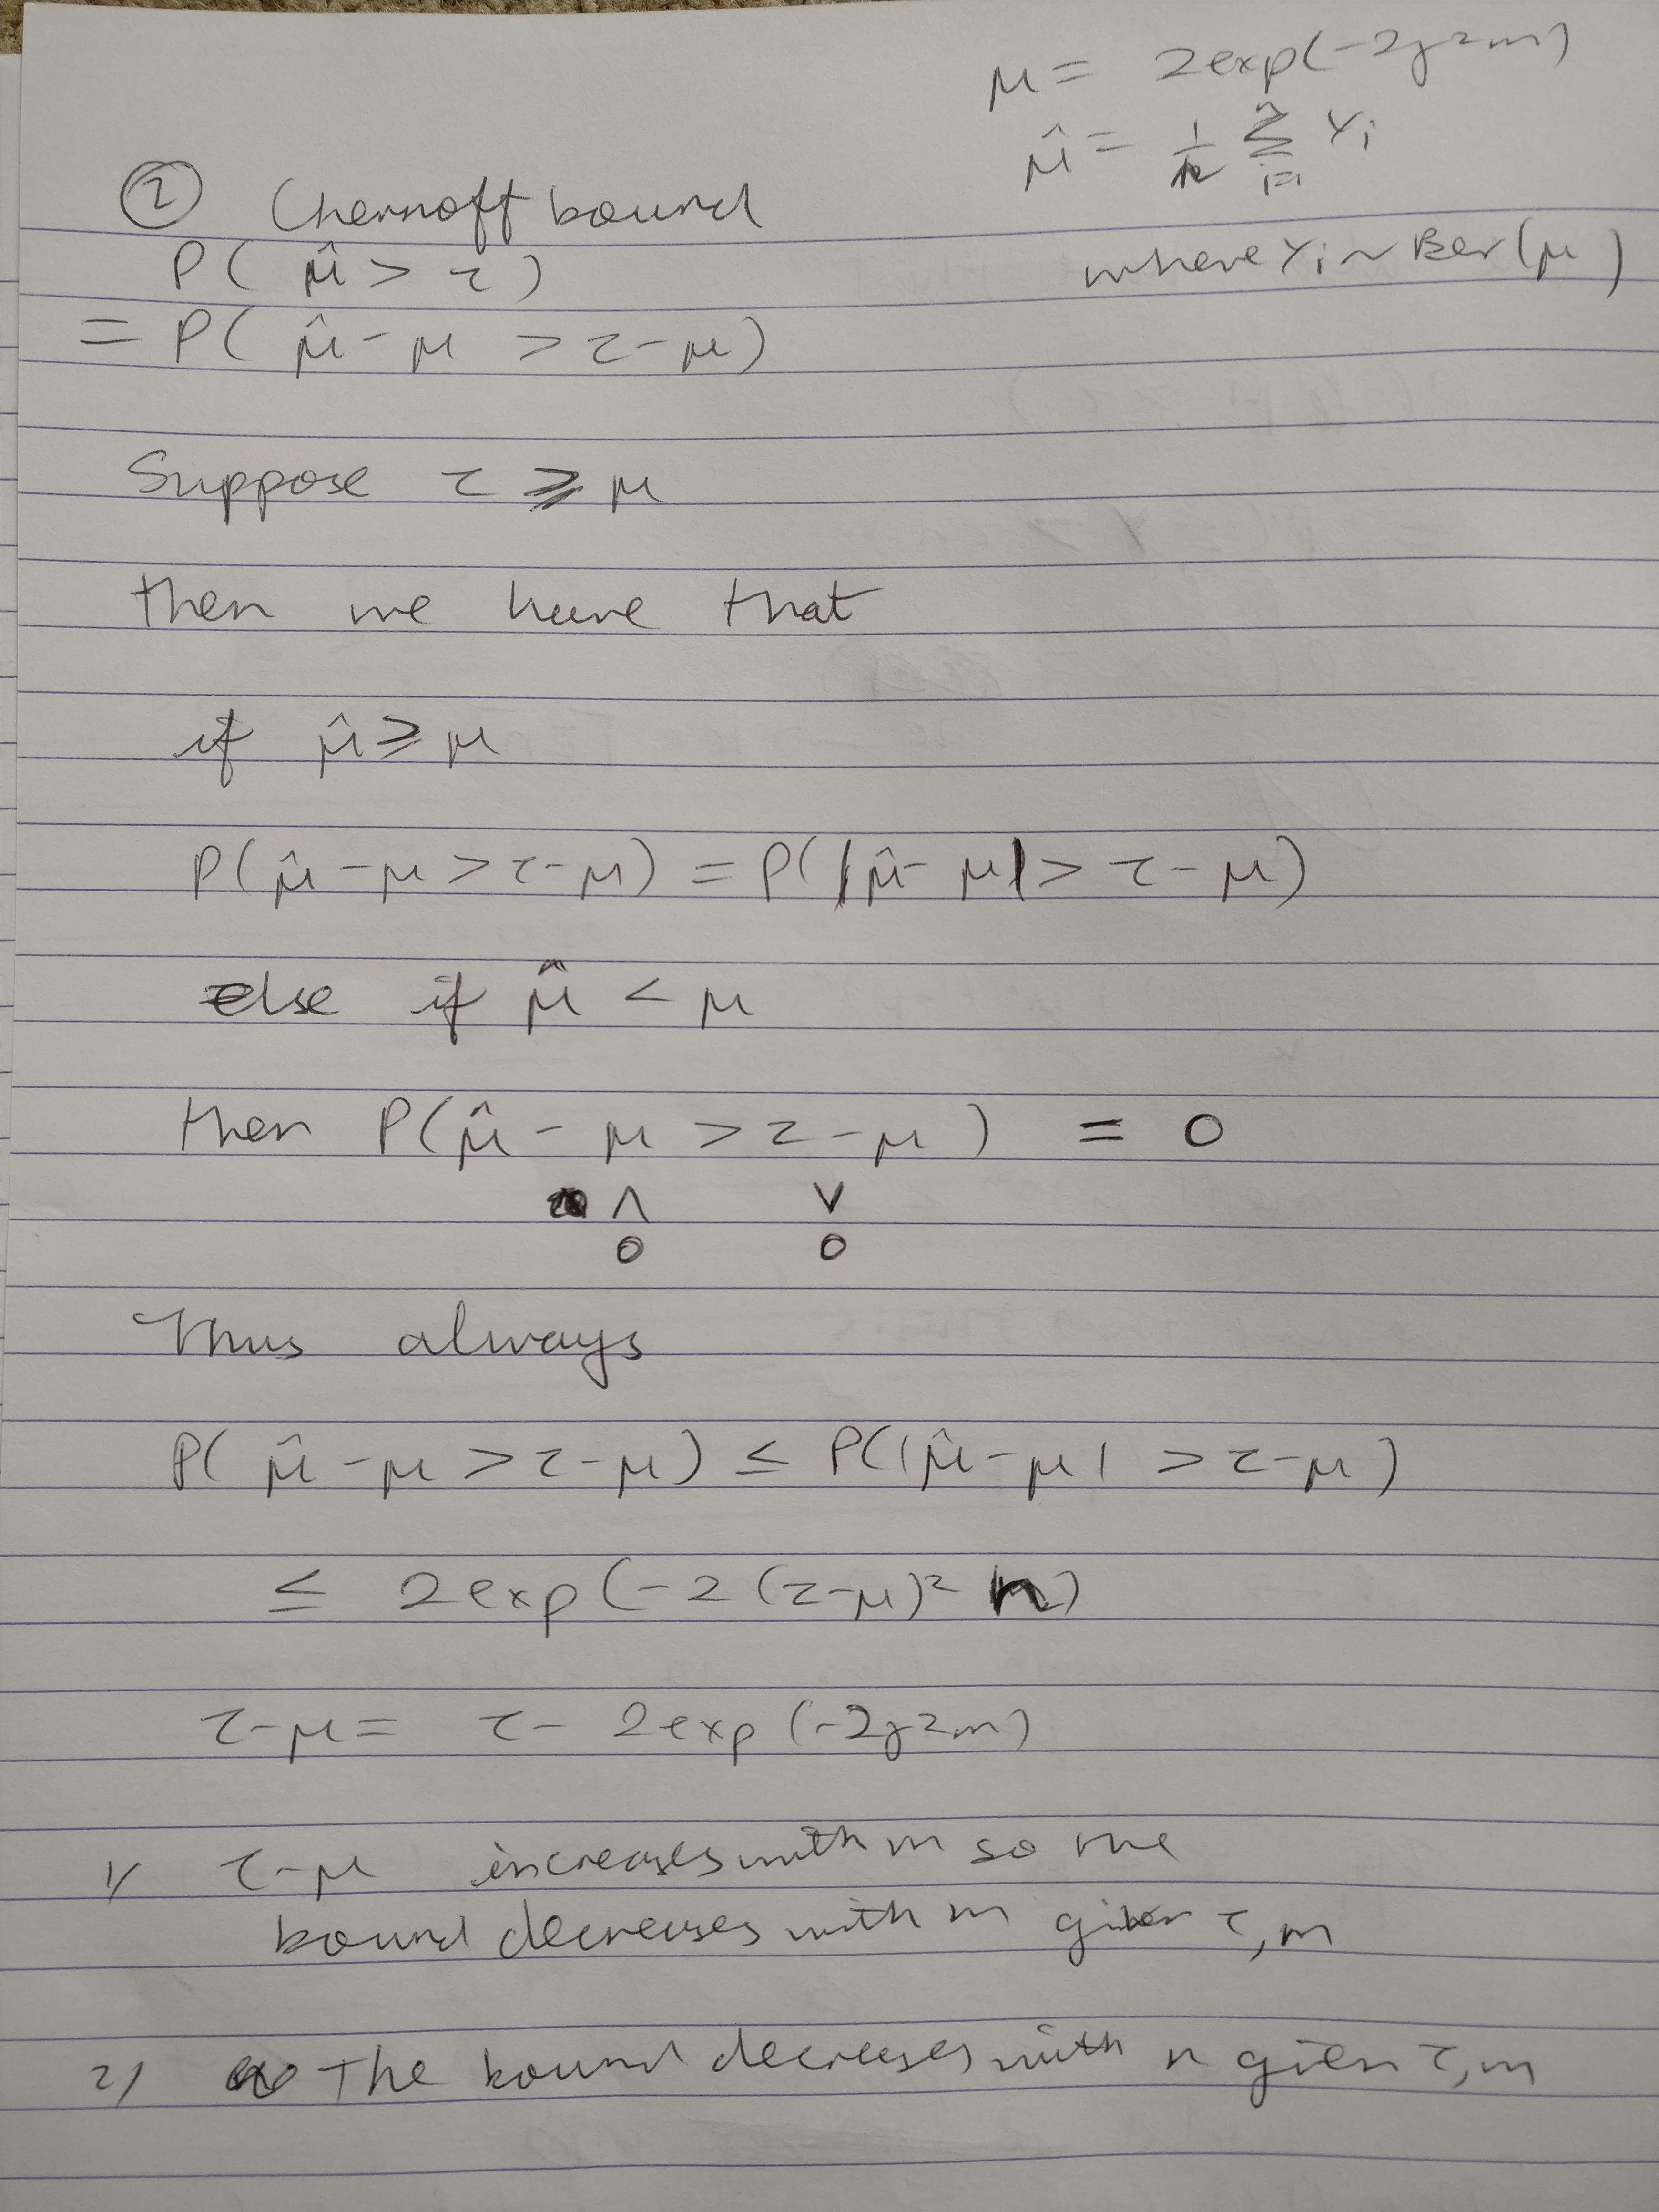 μ = 2exp(-2γ²m)
μ̂ = 1/n Σ_{i=1}^{n} Y_i
② Chernoff bound
P( μ̂ > τ )
where Y_i ~ Ber(μ)
= P( μ̂ - μ > τ - μ )
Suppose τ ⩾ μ
then we have that
if μ̂ ⩾ μ
P(μ̂ - μ > τ - μ) = P(|μ̂ - μ| > τ - μ)
Else if μ̂ < μ
then P(μ̂ - μ > τ - μ) = 0
∧ ∨
0 0
Thus always
P( μ̂ - μ > τ - μ) ≤ P(|μ̂ - μ| > τ - μ)
≤ 2exp(-2(τ-μ)² n)
τ - μ = τ - 2exp(-2γ²m)
1/ τ - μ increases with m so the
bound decreases with m given τ, m
2/ The bound decreases with n given τ, m